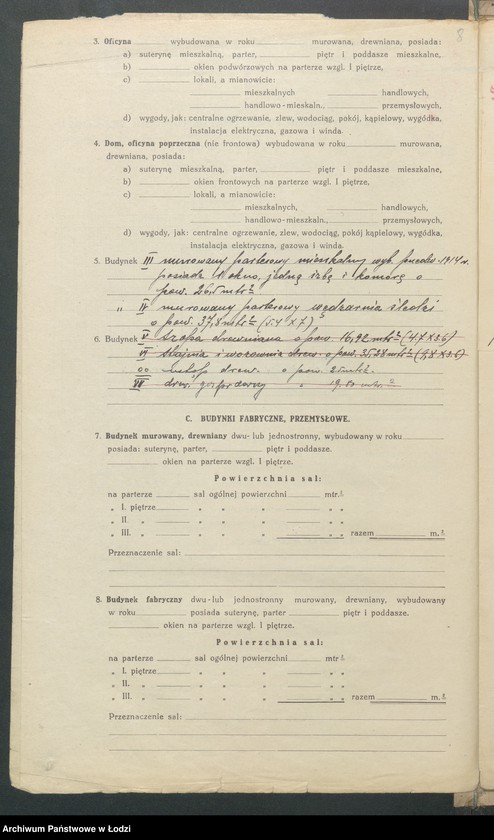 8
3. Oficyna wybudowana w roku murowana, drewniana, posiada:
a) suterynę mieszkalną, parter, piętr i poddasze mieszkalne,
b) okien podwórzowych na parterze wzgl. I piętrze,
c) lokali, a mianowicie:
mieszkalnych handlowych,
handlowo-mieskaln., przemysłowych,
d) wygody, jak: centralne ogrzewanie, zlew, wodociąg, pokój, kąpielowy, wygódka,
instalacja elektryczna, gazowa i winda.
4. Dom, oficyna poprzeczna (nie frontowa) wybudowana w roku murowana,
drewniana, posiada:
a) suterynę mieszkalną, parter, piętr i poddasze mieszkalne,
b) okien frontowych na parterze wzgl. I piętrze,
c) lokali, a mianowicie:
mieszkalnych, handlowych,
handlowo-mieszkaln., przemysłowych,
d) wygody, jak: centralne ogrzewanie, zlew, wodociąg, pokój kąpielowy, wygódka,
instalacja elektryczna, gazowa i winda.
5. Budynek III murowany parterowy mieszkalny wyb. przed r. 1914 r.
posiada 1 okno, jedną izbę i komorę o
pow. 26,5 mtr²
" IV murowany parterowy wędzarnia śledzi
o pow. 37,8 mtr² (5.4 x 7)
6. Budynek V szopa drewniana o pow. 16,92 mtr² (4.7 x 3.6)
VI stajnia i wozownia drew. o pow. 35.28 mtr² (9,8 x 3.6)
drew. o pow.
VII drew. gospodarczy " 19.80 mtr.²
C. BUDYNKI FABRYCZNE, PRZEMYSŁOWE.
7. Budynek murowany, drewniany dwu- lub jednostronny, wybudowany w roku
posiada: suterynę, parter, piętr i poddasze.
okien na parterze wzgl. I piętrze.
Powierzchnia sal:
na parterze sal ogólnej powierzchni mtr.²
" I. piętrze " " " " "
" II " " " " " "
" III. " " " " " " razem m.²
Przeznaczenie sal:
8. Budynek fabryczny dwu-lub jednostronny murowany, drewniany, wybudowany
w roku posiada suterynę, parter piętr i poddasze.
okien na parterze wzgl. I piętrze.
Powierzchnia sal:
na parterze sal ogólnej powierzchni mtr.²
" I. piętrze " " " " "
" II. " " " " " "
" III. " " " " " " razem m.²
Przeznaczenie sal:
Archiwum Państwowe w Łodzi